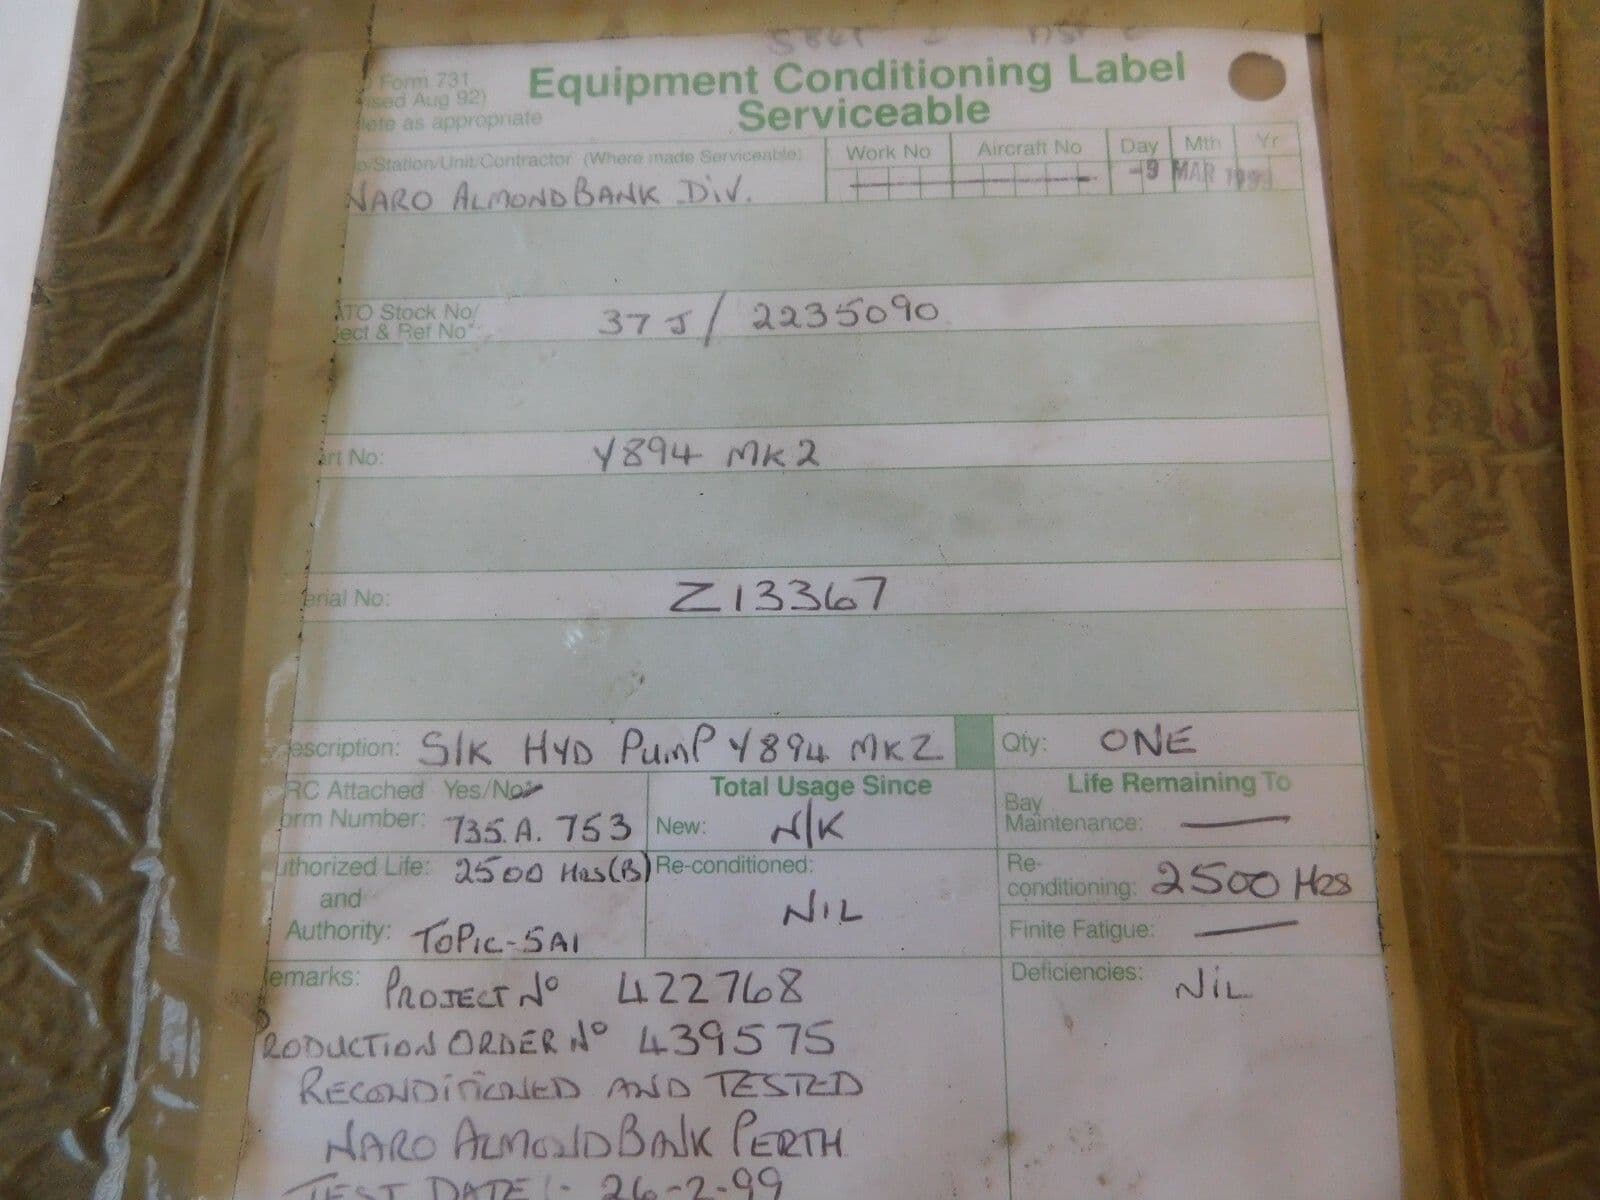 Form 731
Equipment Conditioning Label
Aug 92)
Serviceable
as appropriate
/Station/Unit/Contractor (Where made Serviceable)
Work No
Aircraft No
Day
Mth
Yr
NARO ALMONDBANK DIV.
-9 MAR
ATO Stock No/
ect & Ref No*
37J / 2235090
rt No:
Y894 MK2
erial No:
Z13367
escription: S/K HYD PUMP Y894 MK2
Qty: ONE
RC Attached Yes/No*
Total Usage Since
Life Remaining To
orm Number: 735.A. 753
New: N/K
Bay
Maintenance: —
uthorized Life: 2500 HRS(B)
and
Authority: TOPIC-5A1
Re-conditioned:
NIL
Re-
conditioning: 2500 HRS
Finite Fatigue: —
emarks: PROJECT Nº 422768
Deficiencies: NIL
PRODUCTION ORDER Nº 439575
RECONDITIONED AND TESTED
NARO ALMONDBANK PERTH
TEST DATE :- 26-2-99